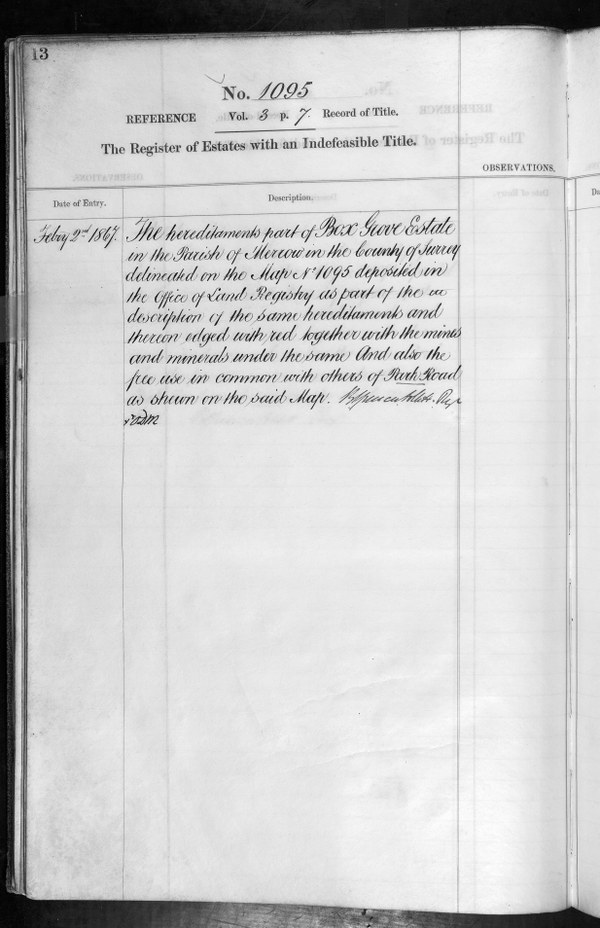 13
No. 1095
REFERENCE Vol. 3 p. 7. Record of Title.
The Register of Estates with an Indefeasible Title.
OBSERVATIONS.
Date of Entry.
Description.
Febry 2nd 1867.
The hereditaments part of Box Grove Estate
in the Parish of Merrow in the County of Surrey
delineated on the Map No 1095 deposited in
the Office of Land Registry as part of the
description of the same hereditaments and
thereon edged with red together with the mines
and minerals under the same And also the
free use in common with others of Road
as shewn on the said Map.